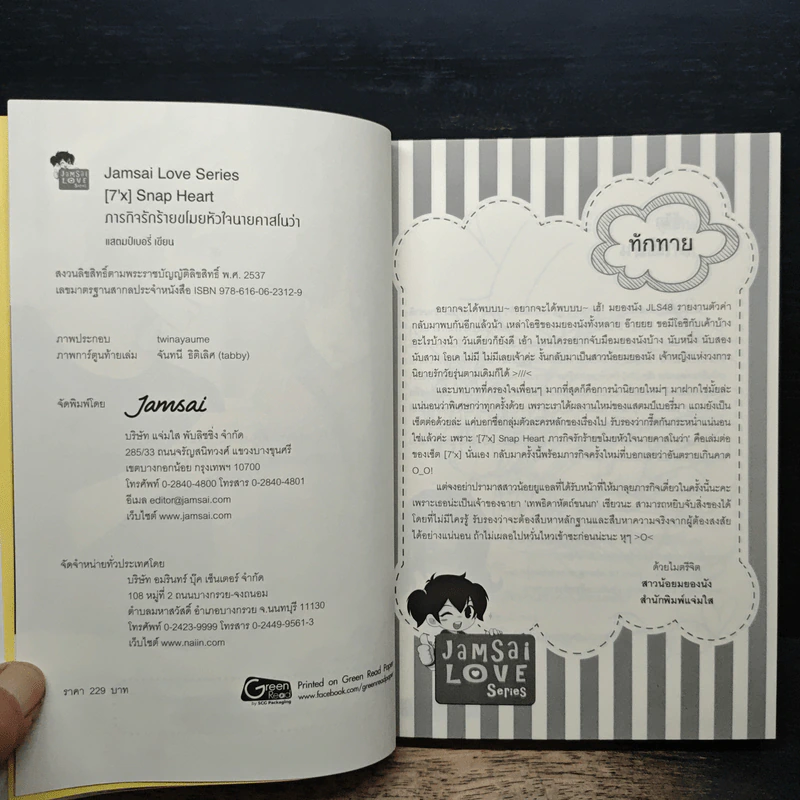 JAMSAI
LOVE
Series
Jamsai Love Series
[7'x] Snap Heart
ภารกิจรักร้ายขโมยหัวใจนายคาสโนว่า
แสตมป์เบอรี่ เขียน
สงวนลิขสิทธิ์ตามพระราชบัญญัติลิขสิทธิ์ พ.ศ. 2537
เลขมาตรฐานสากลประจำหนังสือ ISBN 978-616-06-2312-9
ภาพประกอบ twinayaume
ภาพการ์ตูนท้ายเล่ม จันทนี ธิติเลิศ (tabby)
จัดพิมพ์โดย Jamsai
บริษัท แจ่มใส พับลิชชิ่ง จำกัด
285/33 ถนนจรัญสนิทวงศ์ แขวงบางขุนศรี
เขตบางกอกน้อย กรุงเทพฯ 10700
โทรศัพท์ 0-2840-4800 โทรสาร 0-2840-4801
อีเมล editor@jamsai.com
เว็บไซต์ www.jamsai.com
จัดจำหน่ายทั่วประเทศโดย
บริษัท อมรินทร์ บุ๊ค เซ็นเตอร์ จำกัด
108 หมู่ที่ 2 ถนนบางกรวย-จงถนอม
ตำบลมหาสวัสดิ์ อำเภอบางกรวย จ.นนทบุรี 11130
โทรศัพท์ 0-2423-9999 โทรสาร 0-2449-9561-3
เว็บไซต์ www.naiin.com
ราคา 229 บาท
Green
Read
By SCG Packaging
Printed on Green Read Paper
www.facebook.com/greenreadpaper
ทักทาย
อยากจะได้พบบบ~ อยากจะได้พบบบ~ เฮ้! มยองนัง JLS48 รายงานตัวค่า
กลับมาพบกันอีกแล้วน้า เหล่าโอชิของมยองนังทั้งหลาย อ๊ายยย ขอมีโอชิกับเค้าบ้าง
อะไรบ้างน้า วันเดียวก็ยังดี เอ้า ไหนใครอยากจับมือมยองนังบ้าง นับหนึ่ง นับสอง
นับสาม โอเค ไม่มี ไม่มีเลยเจ้าค่ะ งั้นกลับมาเป็นสาวน้อยมยองนัง เจ้าหญิงแห่งวงการ
นิยายรักวัยรุ่นตามเดิมก็ได้ >///<
และบทบาทที่ครองใจเพื่อนๆ มากที่สุดก็คือการนำนิยายใหม่ๆ มาฝากใช่มั้ยล่ะ
แน่นอนว่าพิเศษกว่าทุกครั้งด้วย เพราะเราได้ผลงานใหม่ของแสตมป์เบอรี่มา แถมยังเป็น
เซ็ตต่อด้วยล่ะ แค่บอกชื่อกลุ่มตัวละครหลักของเรื่องไป รับรองว่ากรี๊ดกันกระหน่ำแน่นอน
ใช่แล้วค่ะ เพราะ '[7'x] Snap Heart ภารกิจรักร้ายขโมยหัวใจนายคาสโนว่า' คือเล่มต่อ
ของเซ็ต [7'x] นั่นเอง กลับมาครั้งนี้พร้อมภารกิจครั้งใหม่ที่บอกเลยว่าอันตรายเกินคาด
O_O!
แต่จงอย่าปรามาสสาวน้อยยูแอลที่ได้รับหน้าที่ให้มาลุยภารกิจเดี่ยวในครั้งนี้นะคะ
เพราะเธอน่ะเป็นเจ้าของฉายา 'เทพธิดาหัตถ์ขนนก' เชียวนะ สามารถหยิบจับสิ่งของได้
โดยที่ไม่มีใครรู้ รับรองว่าจะต้องสืบหาหลักฐานและสืบหาความจริงจากผู้ต้องสงสัย
ได้อย่างแน่นอน ถ้าไม่เผลอไปหวั่นไหวเข้าซะก่อนน่ะนะ หุๆ >O<
ด้วยไมตรีจิต
สาวน้อยมยองนัง
สำนักพิมพ์แจ่มใส
JAMSAI
LOVE
Series